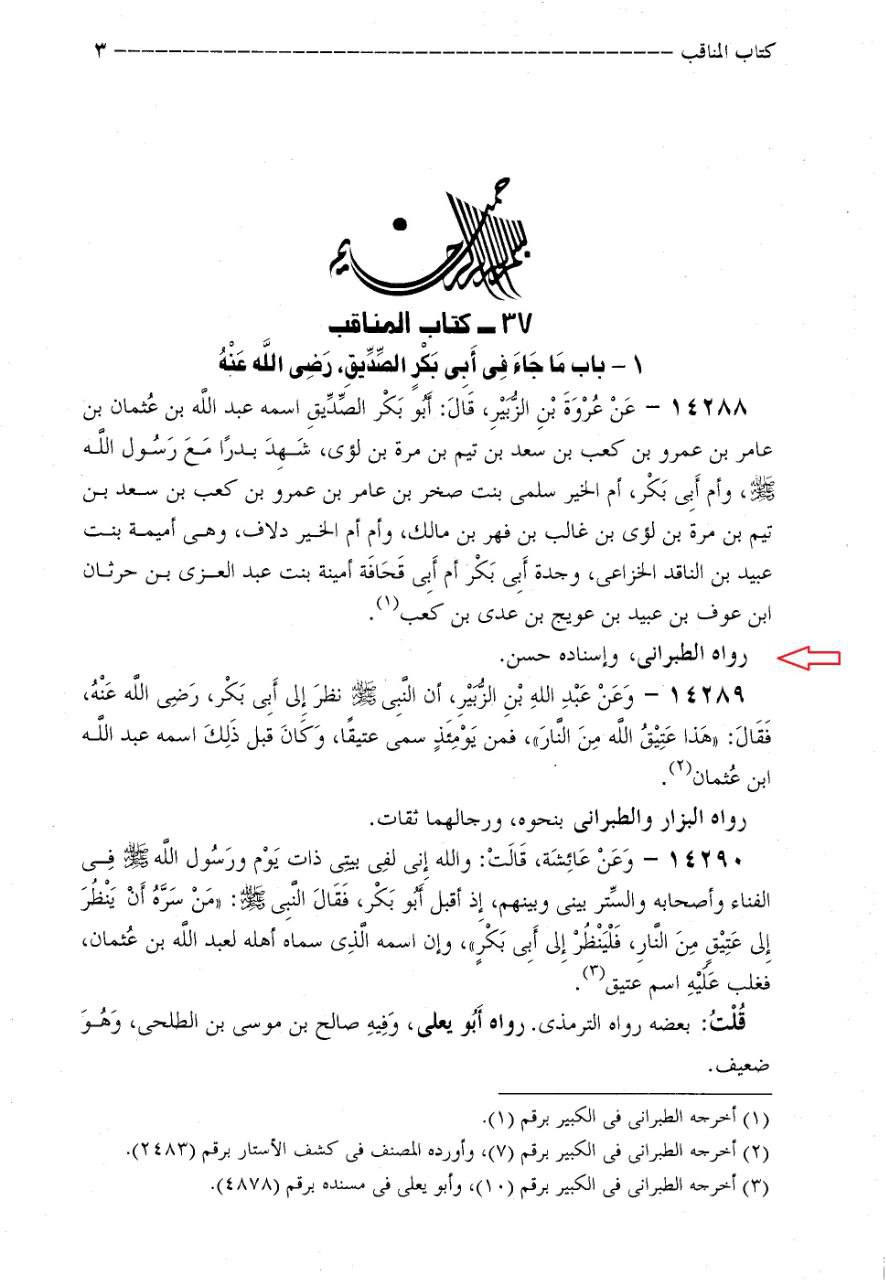 كتاب المناقب ---------------------------------------- ٣
بسم الله الرحمن الرحيم
٣٧ ـ كتاب المناقب
١ - باب مَا جَاءَ فِى أَبِى بَكْرٍ الصِّدِّيقِ، رَضِى اللَّه عَنْهُ
١٤٢٨٨ – عَنْ عُرْوَةَ بْنِ الزُّبَيْرِ، قَالَ: أَبُو بَكْر الصِّدِّيقِ اسمه عبد الله بن عُثمان بن
عامر بن عمرو بن كعب بن سعد بن تيم بن مرة بن لؤى، شَهِدَ بدرًا مَعَ رَسُول اللَّه
ﷺ، وأم أَبِى بَكْر، أم الخير سلمى بنت صخر بن عامر بن عمرو بن كعب بن سعد بن
تيم بن مرة بن لؤى بن غالب بن فهر بن مالك، وأم أم الخير دلاف، وهى أميمة بنت
عبيد بن الناقد الخزاعى، وجدة أَبِى بَكْر أم أَبِى قَحَافَة أمينة بنت عبد العزى بن حرثان
ابن عوف بن عبيد بن عويج بن عدى بن كعب(١).
رواه الطبرانى، وإسناده حسن.
١٤٢٨٩ – وَعَنْ عَبْدِ اللهِ بْنِ الزُّبَيْرِ، أن النَّبِى ﷺ نظرَ إلى أَبِى بَكْر، رَضِى اللَّه عَنْهُ،
فَقَالَ: «هَذا عَتِيْقُ اللَّه مِنَ النَّارَ»، فمن يَوْمِئَذٍ سمى عتيقًا، وَكَانَ قبل ذَلِكَ اسمه عبد اللَّه
ابن عُثمان(٢).
رواه البزار والطبرانى بنحوه، ورجالهما ثقات.
١٤٢٩٠ – وَعَنْ عَائِشَة، قَالَتْ: والله إنى لفِى بيتِى ذات يَوْم ورَسُول اللَّه ﷺ فِى
الفناء وأصحابه والسِّتر بينى وبينهم، إذ أقبل أَبُو بَكْر، فَقَالَ النَّبِى ﷺ: «مَنْ سَرَّهُ أَنْ يَنْظُرَ
إلى عَتِيْقٍ مِنَ النَّارِ، فَلْيَنْظُرْ إلى أَبِى بَكْرٍ»، وإن اسمه الَّذِى سماه أهله لعبد اللَّه بن عُثمان،
فغلب عَلَيْهِ اسم عتيق(٣).
قُلْتُ: بعضه رواه الترمذى. رواه أَبُو يعلى، وَفِيهِ صالح بن موسى بن الطلحى، وَهُوَ
ضعيف.
(١) أخرجه الطبرانى فى الكبير برقم (١).
(٢) أخرجه الطبرانى فى الكبير برقم (٧)، وأورده المصنف فى كشف الأستار برقم (٢٤٨٣).
(٣) أخرجه الطبرانى فى الكبير برقم (١٠)، وأبو يعلى فى مسنده برقم (٤٨٧٨).